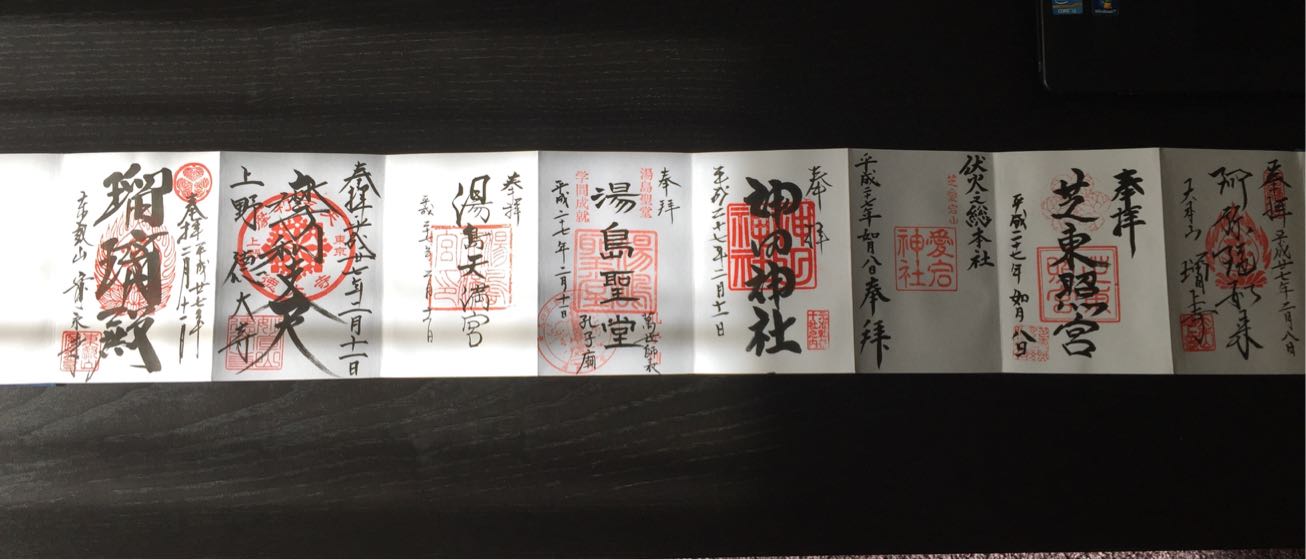 奉拝 平成廿七年二月八日
阿弥陀如来
三縁山 増上寺
奉拝
芝東照宮
平成二十七年 如月 八日
伏火之総本社
芝愛宕山
愛宕神社
平成二十七年如月八日奉拝
奉拝
神田神社
平成二十七年二月十一日
奉拝
湯島聖堂
萬世師表
湯島聖堂
孔子廟
学問成就
平成二十七年二月十一日
奉拝
湯島天満宮
平成二十七年二月十一日
奉拝 平成廿七年二月十一日
摩利支天
上野 徳大寺
奉拝 平成廿七年二月十一日
瑠璃殿
東叡山 寛永寺